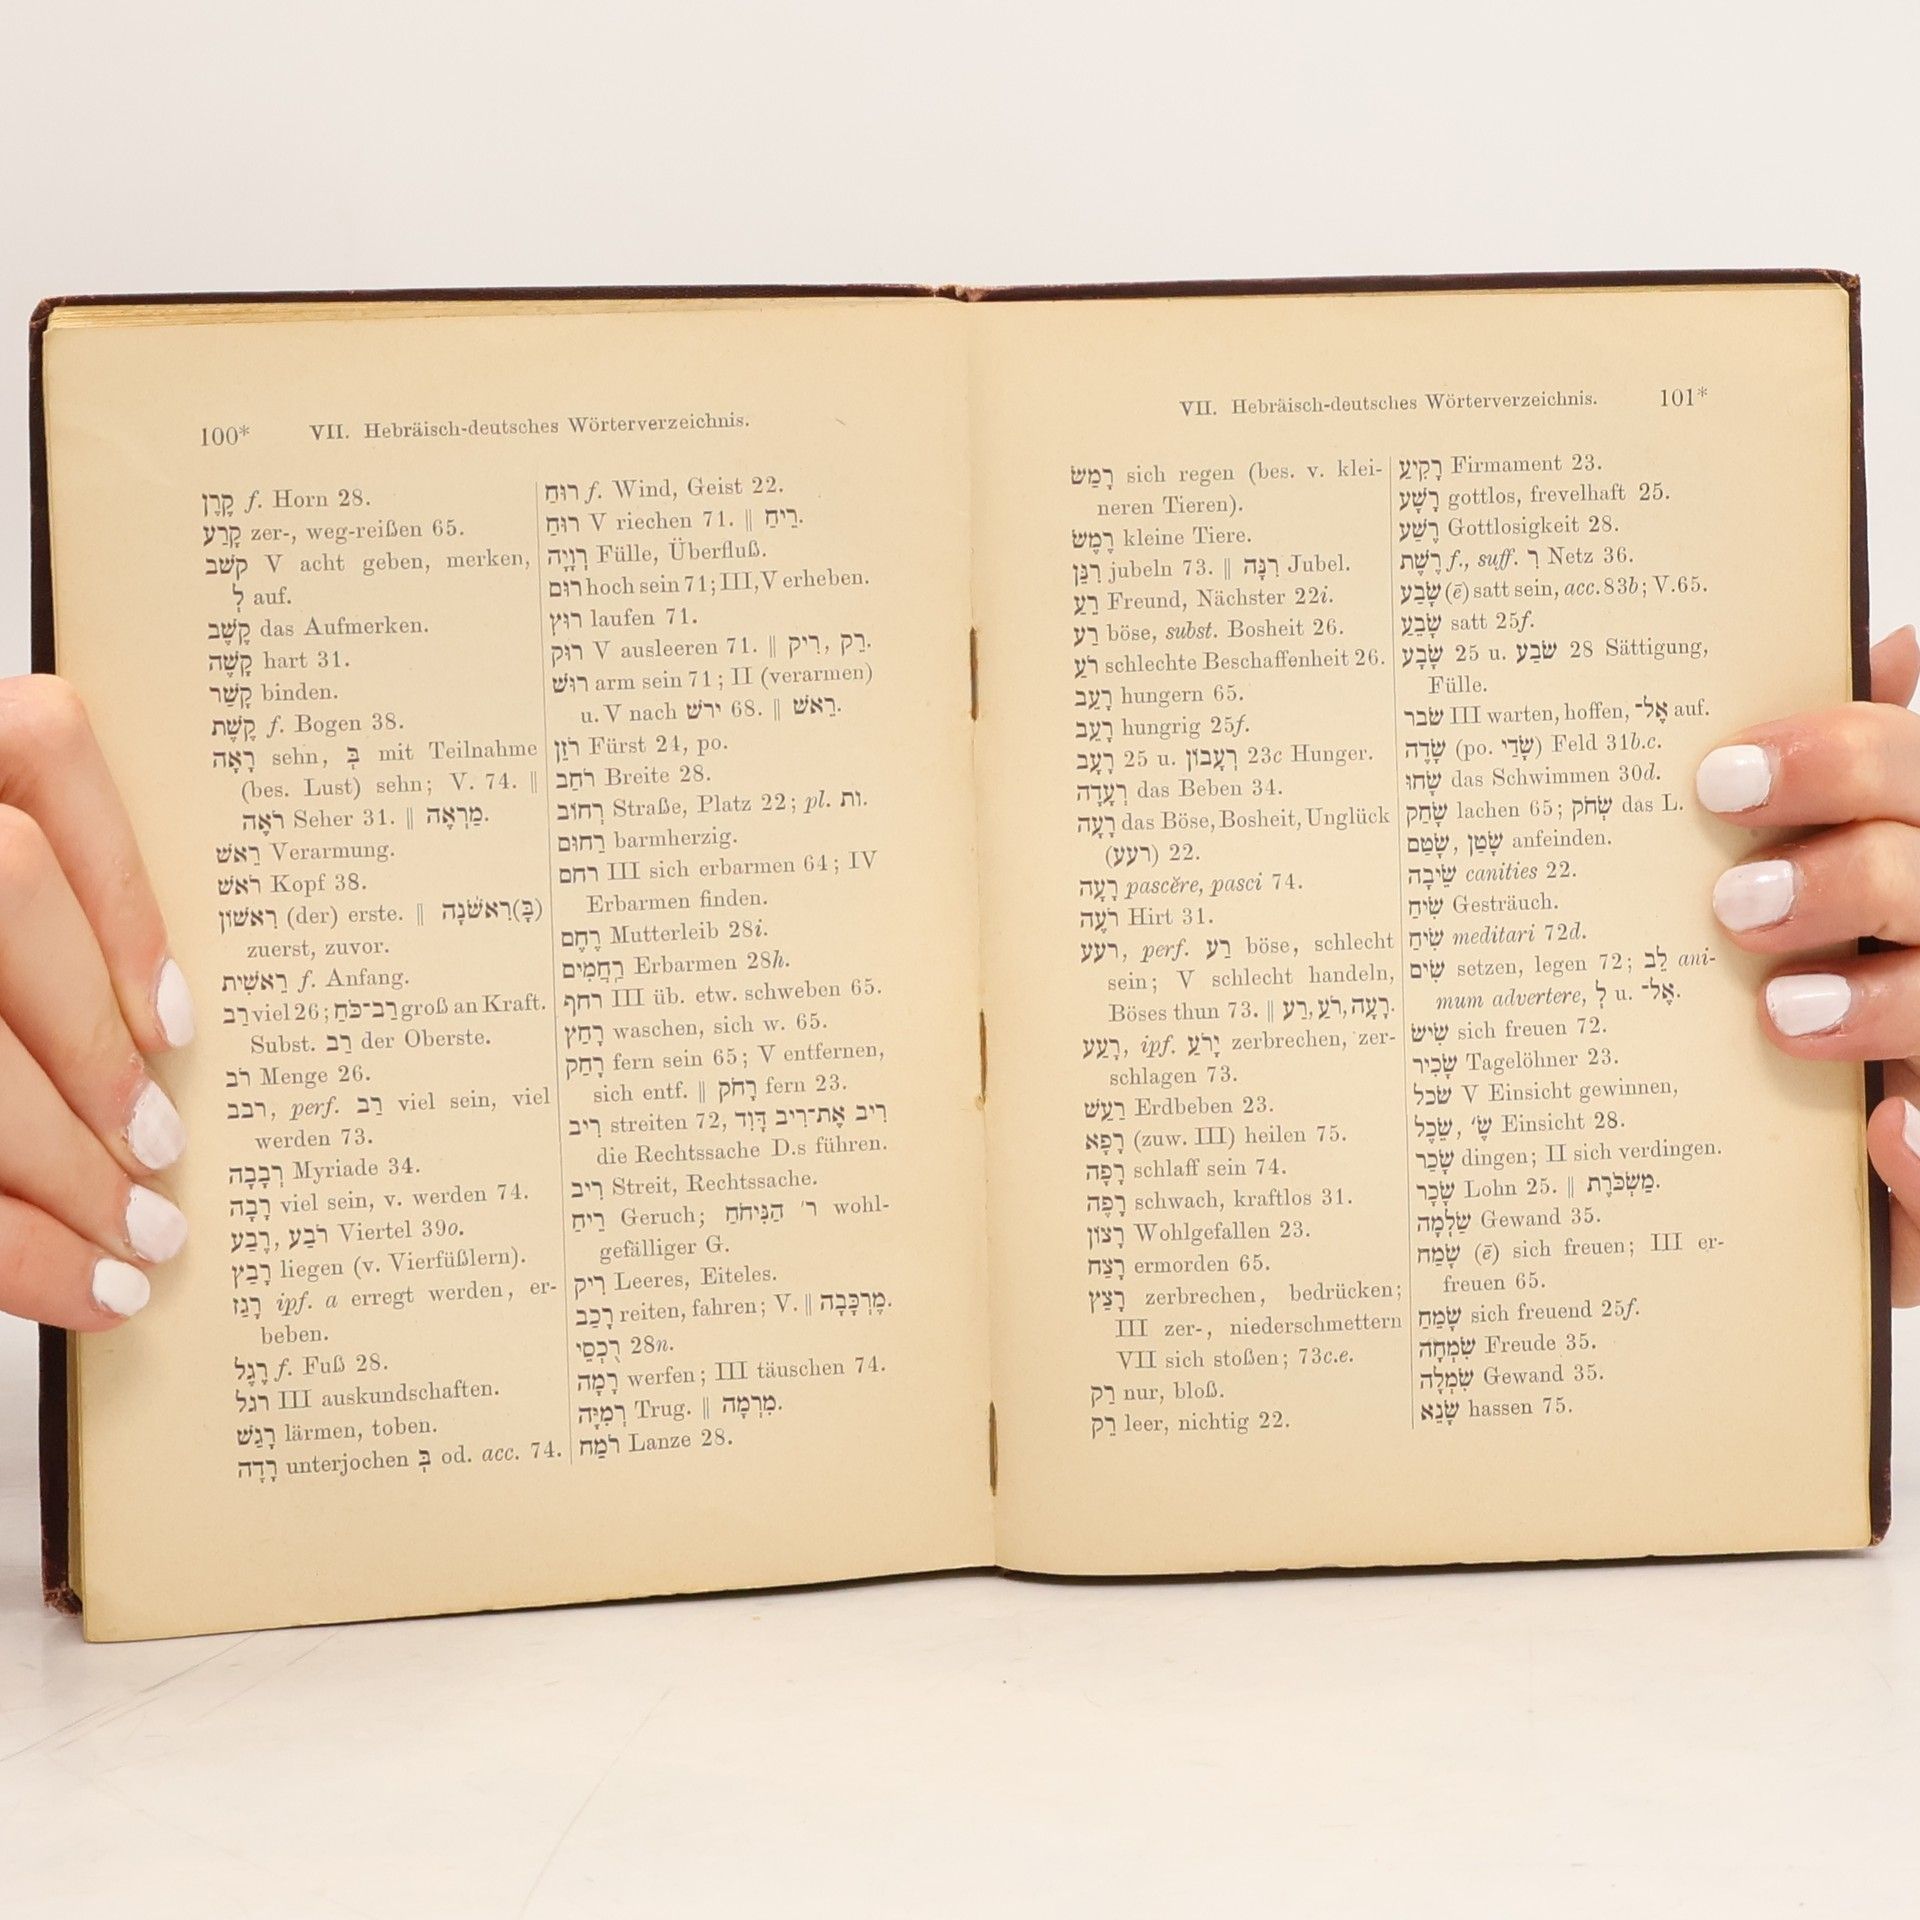 100* VII. Hebräisch-deutsches Wörterverzeichnis.
קֶרֶן f. Horn 28.
קָרַע zer-, weg-reißen 65.
קשׁב V acht geben, merken,
לְ auf.
קֶשֶׁב das Aufmerken.
קָשֶׁה hart 31.
קָשַׁר binden.
קֶשֶׁת f. Bogen 38.
רָאָה sehn, בְּ mit Teilnahme
(bes. Lust) sehn; V. 74. ‖
רֹאֶה Seher 31. ‖ מַרְאֶה.
רֵאשׁ Verarmung.
רֹאשׁ Kopf 38.
רִאשׁוֹן (der) erste. ‖ (בָּ)רִאשֹׁנָה
zuerst, zuvor.
רֵאשִׁית f. Anfang.
רַב viel 26; רַב־כֹּחַ groß an Kraft.
Subst. רַב der Oberste.
רֹב Menge 26.
רבב, perf. רַב viel sein, viel
werden 73.
רְבָבָה Myriade 34.
רָבָה viel sein, v. werden 74.
רֶבַע, רֹבַע Viertel 39o.
רָבַץ liegen (v. Vierfüßlern).
רָגַז ipf. a erregt werden, er-
beben.
רֶגֶל f. Fuß 28.
רגל III auskundschaften.
רָגַשׁ lärmen, toben.
רָדָה unterjochen בְּ od. acc. 74.
רוּחַ f. Wind, Geist 22.
רוּחַ V riechen 71. ‖ רֵיחַ.
רְוָיָה Fülle, Überfluß.
רוּם hoch sein 71; III, V erheben.
רוּץ laufen 71.
רוּק V ausleeren 71. ‖ רֵק, רִיק.
רוּשׁ arm sein 71; II (verarmen)
u. V nach ירשׁ 68. ‖ רֵאשׁ.
רֹזֵן Fürst 24, po.
רֹחַב Breite 28.
רְחוֹב Straße, Platz 22; pl. וֹת.
רַחוּם barmherzig.
רחם III sich erbarmen 64; IV
Erbarmen finden.
רֶחֶם Mutterleib 28i.
רַחֲמִים Erbarmen 28h.
רחף III üb. etw. schweben 65.
רָחַץ waschen, sich w. 65.
רָחַק fern sein 65; V entfernen,
sich entf. ‖ רָחֹק fern 23.
רִיב streiten 72, רִיב אֶת־רִיב דָּוִד
die Rechtssache D.s führen.
רִיב Streit, Rechtssache.
רֵיחַ Geruch; ר׳ הַנִּיחֹחַ wohl-
gefälliger G.
רִיק Leeres, Eiteles.
רָכַב reiten, fahren; V. ‖ מֶרְכָּבָה.
רֻכְסֵי 28n.
רָמָה werfen; III täuschen 74.
רְמִיָּה Trug. ‖ מִרְמָה.
רֹמַח Lanze 28.
VII. Hebräisch-deutsches Wörterverzeichnis. 101*
רָמַשׂ sich regen (bes. v. klei-
neren Tieren).
רֶמֶשׂ kleine Tiere.
רִנֵּן jubeln 73. ‖ רִנָּה Jubel.
רֵעַ Freund, Nächster 22i.
רַע böse, subst. Bosheit 26.
רֹעַ schlechte Beschaffenheit 26.
רָעֵב hungern 65.
רָעֵב hungrig 25f.
רָעָב 25 u. רְעָבוֹן 23c Hunger.
רְעָדָה das Beben 34.
רָעָה das Böse, Bosheit, Unglück
(רעע) 22.
רָעָה pascĕre, pasci 74.
רֹעֶה Hirt 31.
רעע, perf. רַע böse, schlecht
sein; V schlecht handeln,
Böses thun 73. ‖ רָעָה, רֹעַ, רַע.
רָעַע, ipf. יָרֹעַ zerbrechen, zer-
schlagen 73.
רַעַשׁ Erdbeben 23.
רָפָא (zuw. III) heilen 75.
רָפָה schlaff sein 74.
רָפֶה schwach, kraftlos 31.
רָצוֹן Wohlgefallen 23.
רָצַח ermorden 65.
רָצַץ zerbrechen, bedrücken;
III zer-, niederschmettern
VII sich stoßen; 73c.e.
רַק nur, bloß.
רֵק leer, nichtig 22.
רָקִיעַ Firmament 23.
רָשָׁע gottlos, frevelhaft 25.
רֶשַׁע Gottlosigkeit 28.
רֶשֶׁת f., suff. רִ Netz 36.
שָׂבַע (ē) satt sein, acc. 83b; V. 65.
שָׂבֵעַ satt 25f.
שָׂבָע 25 u. שׂבַע 28 Sättigung,
Fülle.
שׂבר III warten, hoffen, אֶל־ auf.
שָׂדֶה (po. שָׂדַי) Feld 31b.c.
שָׂחוּ das Schwimmen 30d.
שָׂחַק lachen 65; שְׂחֹק das L.
שָׂטַן, שָׂטַם anfeinden.
שֵׂיבָה canities 22.
שִׂיחַ Gesträuch.
שִׂיחַ meditari 72d.
שִׂים setzen, legen 72; לֵב ani-
mum advertere, לְ u. אֶל־.
שִׂישׂ sich freuen 72.
שָׂכִיר Tagelöhner 23.
שׂכל V Einsicht gewinnen,
שֵׂכֶל, שֶׂ׳ Einsicht 28.
שָׂכַר dingen; II sich verdingen.
שָׂכָר Lohn 25. ‖ מַשְׂכֹּרֶת.
שַׂלְמָה Gewand 35.
שָׂמַח (ē) sich freuen; III er-
freuen 65.
שָׂמֵחַ sich freuend 25f.
שִׂמְחָה Freude 35.
שִׂמְלָה Gewand 35.
שָׂנֵא hassen 75.